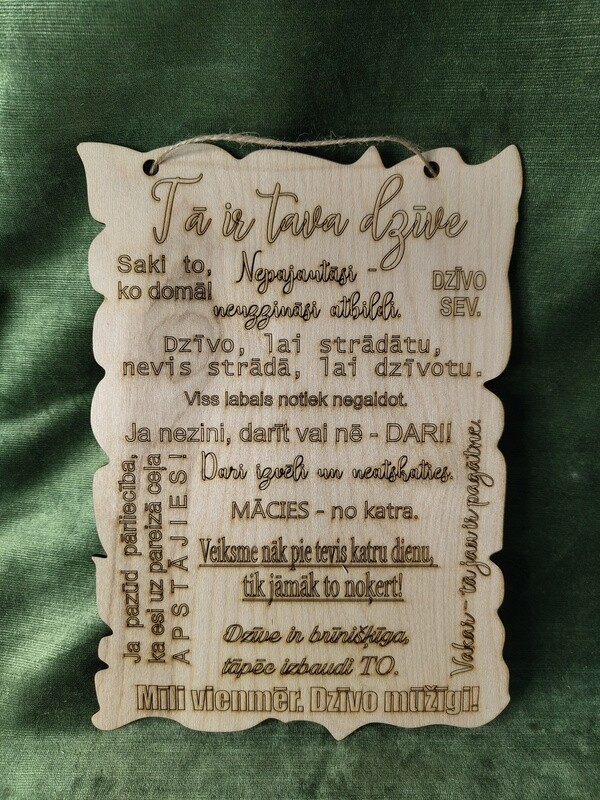 Tā ir tava dzīve
Saki to,
ko domā!
Nepajautāsi -
neuzzināsi atbildi.
DZĪVO
SEV.
Dzīvo, lai strādātu,
nevis strādā, lai dzīvotu.
Viss labais notiek negaidot.
Ja nezini, darīt vai nē - DARI!
Dari izvēli un neatskaties.
MĀCIES - no katra.
Veiksme nāk pie tevis katru dienu,
tik jāmāk to noķert!
Dzīve ir brīnišķīga,
tāpēc izbaudi TO.
Mīli vienmēr. Dzīvo mūžīgi!
Ja pazūd pārliecība,
ka esi uz pareizā ceļa
APSTĀJIES!
Vakar - tā jau ir pagātne.